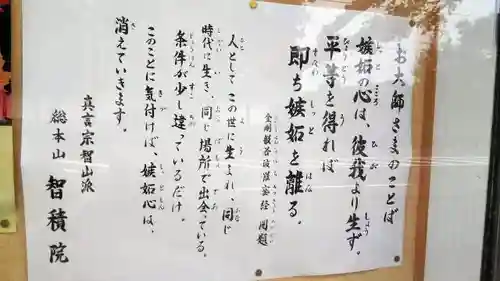 お大師さまのことば
嫉妬の心は、彼我より生ず。
平等を得れば
即ち嫉妬を離る。
金剛般若波羅蜜経 開題
人として この世に生まれ、同じ
時代に生き、同じ場所で出会っている。
条件が少し違っているだけ。
このことに気付けば、嫉妬心は、
消えていきます。
真言宗智山派
総本山 智積院